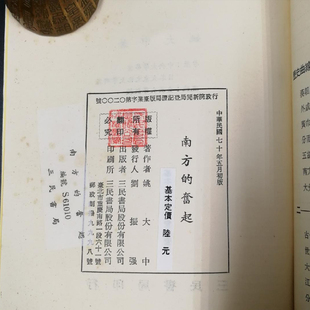 行政院新聞局登記證局版臺業字第〇二〇〇號
中華民國七十年五月初版
南方的奮起
基本定價 陸 元
版權所有
翻印必究
著作者 姚大中
發行人 劉振強
出版者 三民書局股份有限公司
印刷所 三民書局股份有限公司
臺北市重慶南路一段六十一號
郵政劃撥九九九八號
南方的奮起
編號 S61010
三民書局